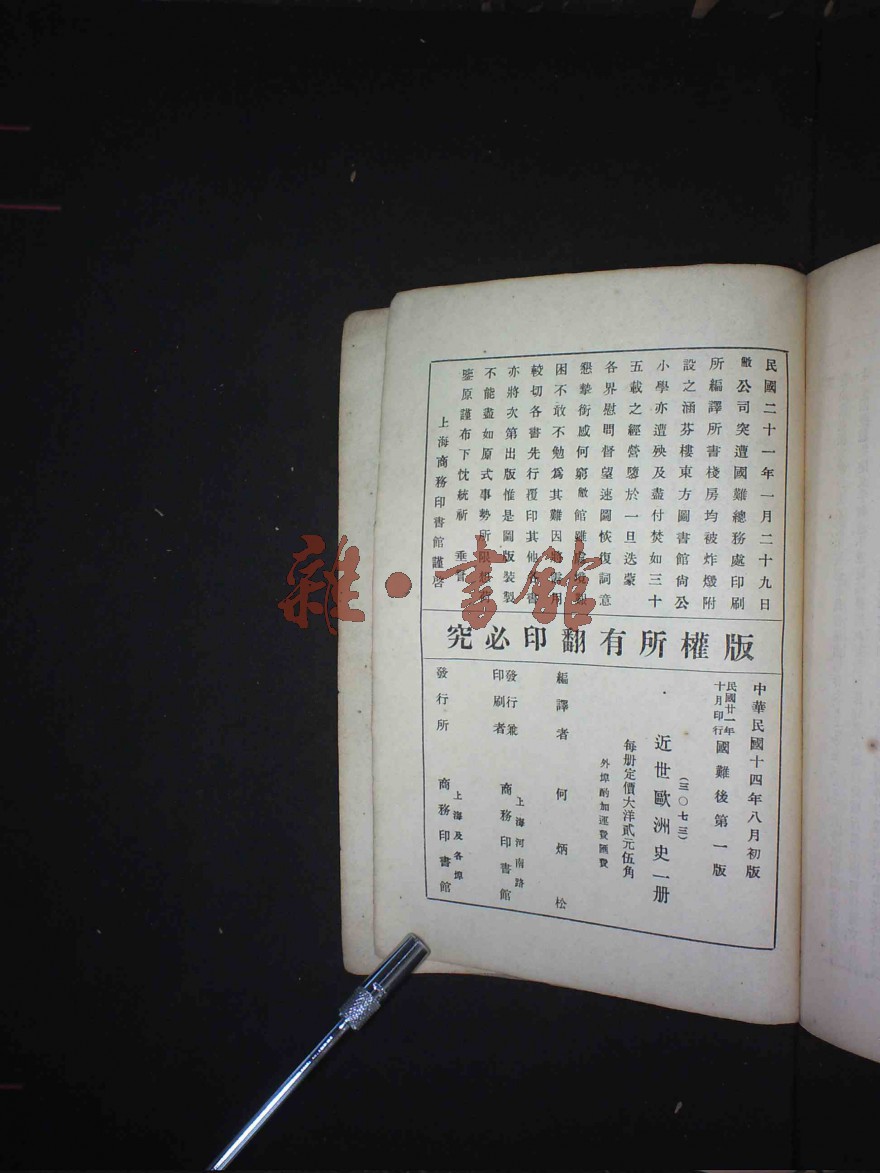 民國二十一年一月二十九日
敝公司突遭國難總務處印刷
所編譯所書棧房均被炸燬附
設之涵芬樓東方圖書館尙公
小學亦遭殃及盡付焚如三十
五載之經營隳於一旦迭蒙
各界慰問督望速圖恢復詞意
懇摯銜感何窮敝館雖處境艱
困不敢不勉爲其難因將需用
較切各書先行覆印其他各書
亦將次第出版惟是圖版裝製
不能盡如原式事勢所限想荷
鑒原謹布下忱統祈 垂詧
上海商務印書館謹啓
版權所有翻印必究
中華民國十四年八月初版
民國廿一年十月印行國難後第一版
(三〇七三)
近世歐洲史一册
每册定價大洋貳元伍角
外埠酌加運費匯費
編譯者 何炳松
發行兼印刷者 上海河南路 商務印書館
發行所 上海及各埠 商務印書館
雜·書館